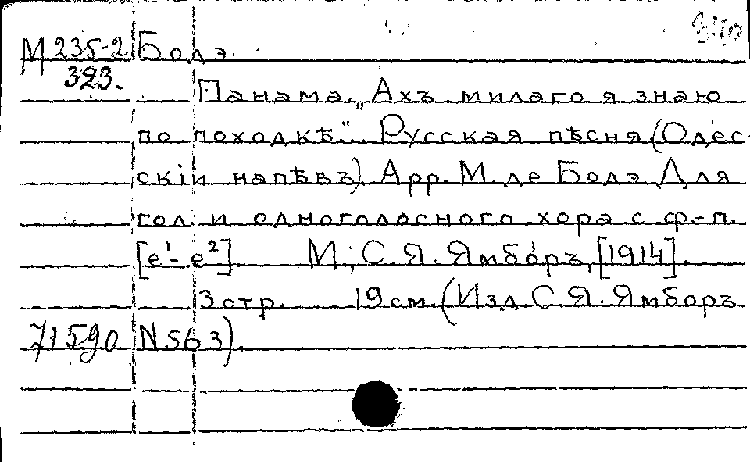 М 235-2 Бодэ
323.
Панама. „Ахъ милаго я знаю
по походкѣ". Русская пѣсня (Одес-
скій напѣвъ). Арр. М. де Бодэ. Для
гол. и одноголосного хора с ф-п.
[e¹- e²]. М., С. Я. Ямборъ, [1914].
3 стр. 19 см. (Изд. С. Я. Ямборъ
71590 N 563).